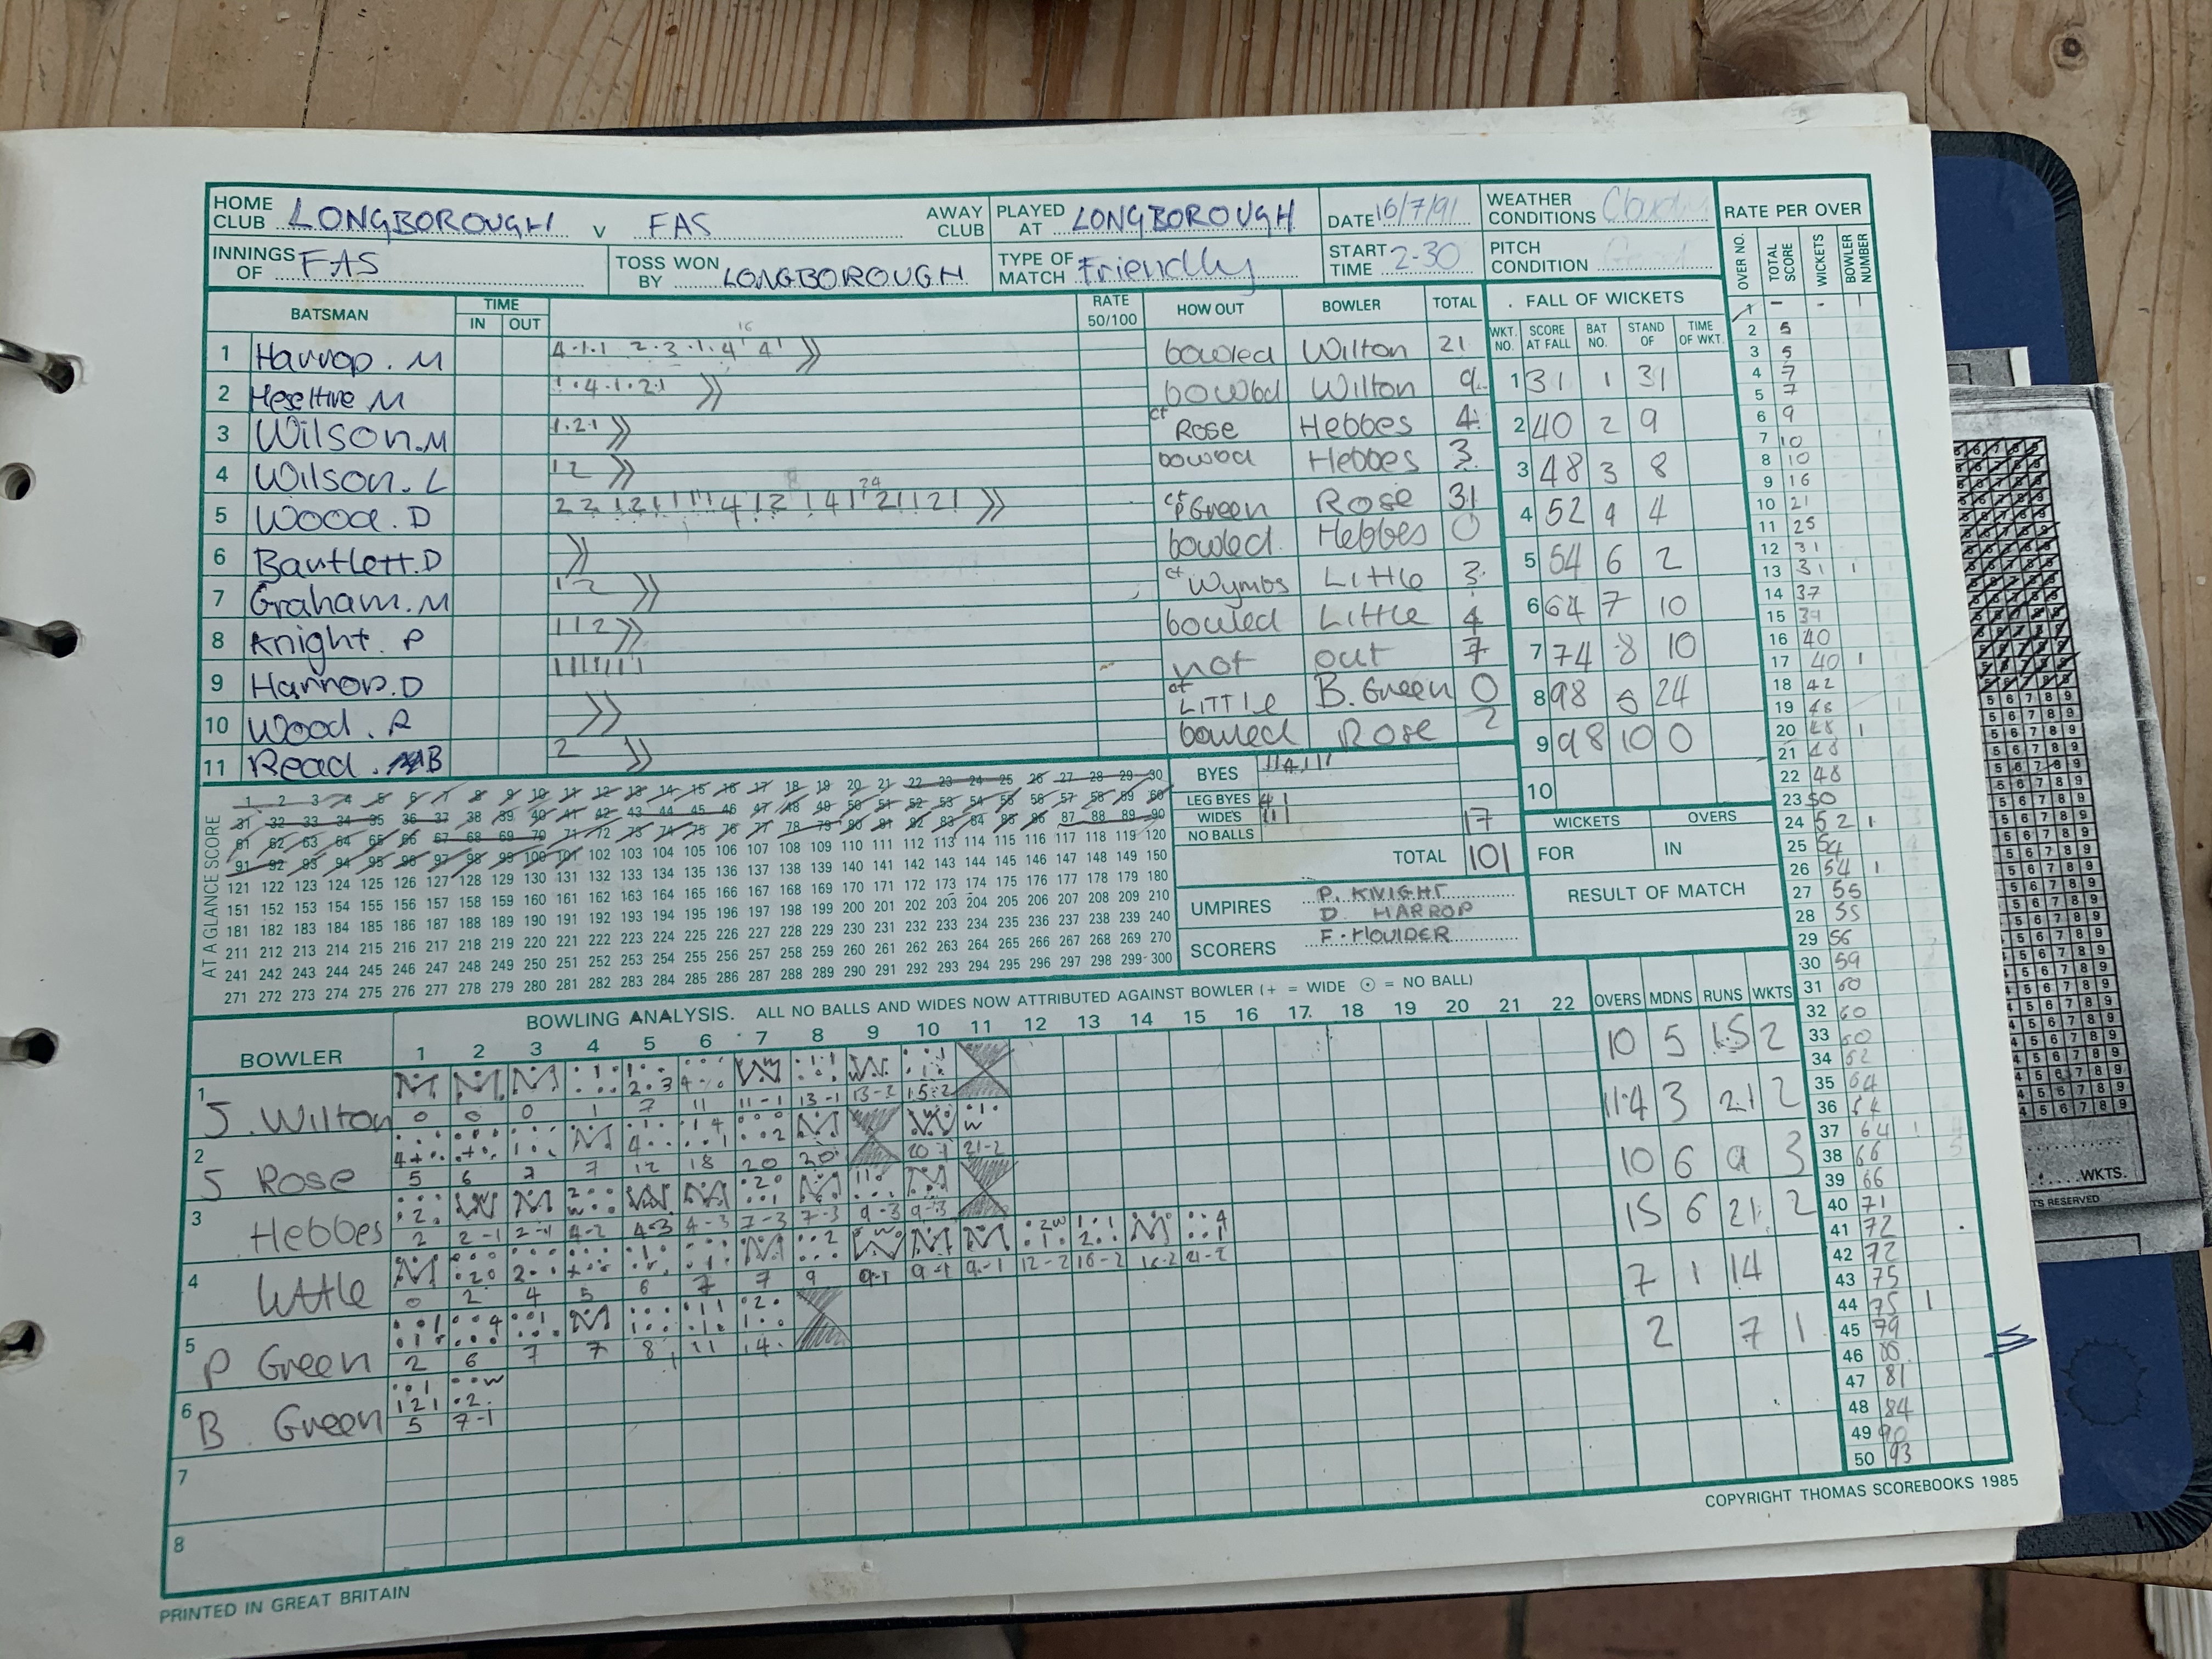 HOME CLUB LONGBOROUGH v FAS AWAY CLUB PLAYED AT LONGBOROUGH DATE 16/7/91 WEATHER CONDITIONS Cloudy
INNINGS OF FAS TOSS WON BY LONGBOROUGH TYPE OF MATCH Friendly START TIME 2-30 PITCH CONDITION Good
RATE PER OVER
OVER NO. TOTAL SCORE WICKETS BOWLER NUMBER
BATSMAN TIME IN OUT RATE 50/100 HOW OUT BOWLER TOTAL
1 Harrop. M 4.1.1 2.3.1.4 4 bowled Wilton 21
2 Heseltine M 1.4.1.21 bowled Wilton 9
3 Wilson. M 1.21 ct Rose Hebbes 4
4 Wilson. L 12 bowled Hebbes 3
5 Wood. D ct P Green Rose 31
6 Bartlett. D bowled Hebbes 0
7 Graham. M 12 ct Wymbs Little 3
8 Knight. P 112 bowled Little 4
9 Harrop. D 1111111 not out 7
10 Wood. R ct LITTLE B. Green 0
11 Read. B 2 bowled Rose 2
FALL OF WICKETS
WKT. NO. SCORE AT FALL BAT NO. STAND OF TIME OF WKT.
1 31 1 31
2 40 2 9
3 48 3 8
4 52 4 4
5 54 6 2
6 64 7 10
7 74 8 10
8 98 5 24
9 98 10 0
10
BYES
LEG BYES 41
WIDES
NO BALLS 17
TOTAL 101
WICKETS OVERS
FOR IN
RESULT OF MATCH
UMPIRES P. KNIGHT
D. HARROP
SCORERS F. HOLIDER
AT A GLANCE SCORE
1 2 3 4 5 6 7 8 9 10 11 12 13 14 15 16 17 18 19 20 21 22 23 24 25 26 27 28 29 30
31 32 33 34 35 36 37 38 39 40 41 42 43 44 45 46 47 48 49 50 51 52 53 54 55 56 57 58 59 60
61 62 63 64 65 66 67 68 69 70 71 72 73 74 75 76 77 78 79 80 81 82 83 84 85 86 87 88 89 90
91 92 93 94 95 96 97 98 99 100 101 102 103 104 105 106 107 108 109 110 111 112 113 114 115 116 117 118 119 120
121 122 123 124 125 126 127 128 129 130 131 132 133 134 135 136 137 138 139 140 141 142 143 144 145 146 147 148 149 150
151 152 153 154 155 156 157 158 159 160 161 162 163 164 165 166 167 168 169 170 171 172 173 174 175 176 177 178 179 180
181 182 183 184 185 186 187 188 189 190 191 192 193 194 195 196 197 198 199 200 201 202 203 204 205 206 207 208 209 210
211 212 213 214 215 216 217 218 219 220 221 222 223 224 225 226 227 228 229 230 231 232 233 234 235 236 237 238 239 240
241 242 243 244 245 246 247 248 249 250 251 252 253 254 255 256 257 258 259 260 261 262 263 264 265 266 267 268 269 270
271 272 273 274 275 276 277 278 279 280 281 282 283 284 285 286 287 288 289 290 291 292 293 294 295 296 297 298 299 300
BOWLING ANALYSIS. ALL NO BALLS AND WIDES NOW ATTRIBUTED AGAINST BOWLER (+ = WIDE ⊙ = NO BALL)
BOWLER 1 2 3 4 5 6 7 8 9 10 11 12 13 14 15 16 17 18 19 20 21 22 OVERS MDNS RUNS WKTS
1 J. Wilton 0 0 0 1 7 11 11-1 13-1 13-2 15-2 10 5 15 2
2 J Rose 5 6 7 7 12 18 20 20 20-1 21-2 11.4 3 21 2
3 Hebbes 2 2-1 2-1 4-2 4-3 4-3 7-3 7-3 9-3 9-3 10 6 9 3
4 Little 0 2 4 5 6 7 7 9 9-1 9-1 9-1 12-2 16-2 16-2 21-2 15 6 21 2
5 P Green 2 6 7 7 8 11 14 7 1 14
6 B. Green 5 7-1 2 7 1
7
8
1 - - 1
2 5
3 5
4 7
5 7
6 9
7 10
8 10
9 16
10 21
11 25
12 31
13 31 1
14 37
15 39
16 40
17 40 1
18 42
19 48
20 48 1
21 48
22 48
23 50
24 52 1
25 54
26 54 1
27 55
28 55
29 56
30 59
31 60
32 60
33 60
34 62
35 64
36 64
37 64 1
38 66
39 66
40 71
41 72
42 72
43 75
44 75 1
45 79
46 80
47 81
48 84
49 90
50 93
PRINTED IN GREAT BRITAIN
COPYRIGHT THOMAS SCOREBOOKS 1985
WKTS.